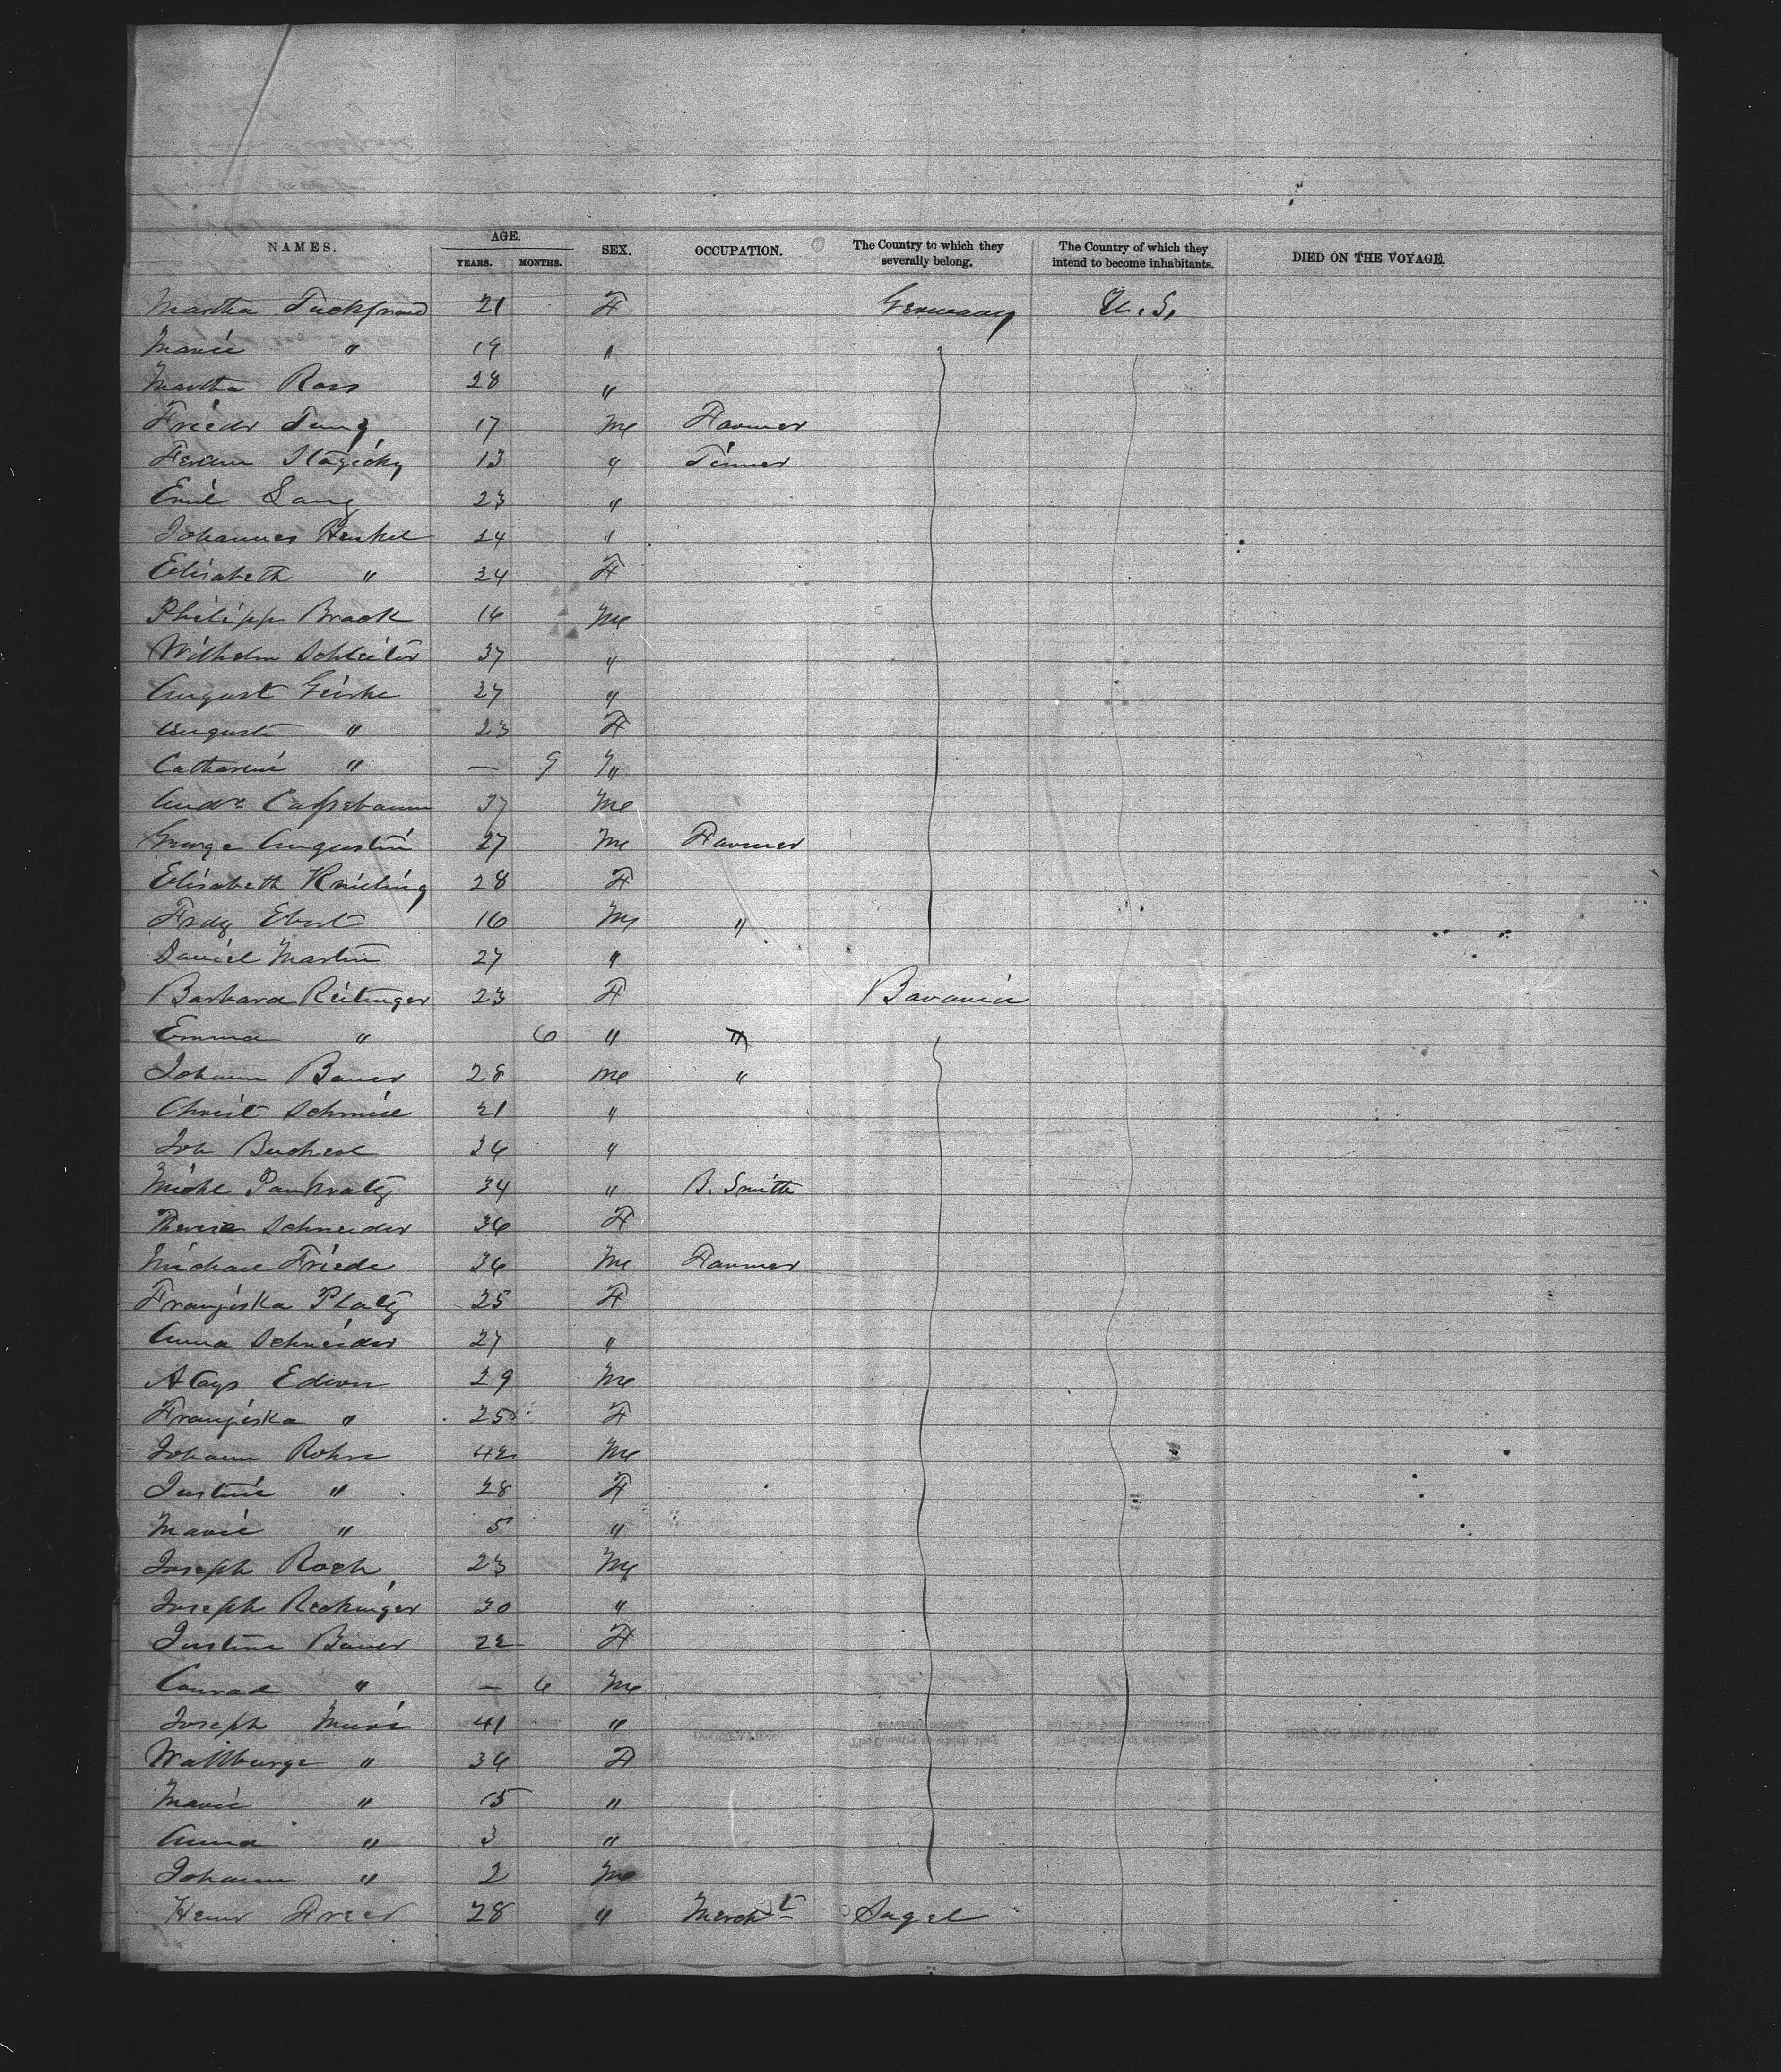 NAMES. AGE. YEARS. MONTHS. SEX. OCCUPATION. The Country to which they severally belong. The Country of which they intend to become inhabitants. DIED ON THE VOYAGE.
Martha 21 F Germany U.S.
Marie " 19 "
Martha Ross 28 "
Friedr Jung 17 M Farmer
13 " Tinner
Emil Lang 23 "
Johannes Henkel 24 "
Elisabeth " 24 F
Philipp Brack 16 M
Wilhelm Schleiter 37 "
August Geishe 27 "
August " 23 F
Catharine " — 9 "
Andr. Cassebaum 37 M
George Augustin 27 M Farmer
Elisabeth Knieling 28 F
Frdg Ebert 16 M "
Daniel Martin 27 "
Barbara Reitinger 23 F Bavaria
Emma " 6 "
Johann Bauer 28 M "
Christ 21 "
Joh 36 "
Michl Pankratz 34 " B. Smith
Therese Schneider 36 F
Michael Friede 36 M Farmer
Franziska Platz 25 F
Anna Schneider 27 "
Aloys 29 M
Franziska " 25 F
Johann Rohre 42 M
Justine " 28 F
Marie " 5 "
Joseph Roch 23 M
Joseph Reckinger 30 "
Justine Bauer 22 F
Conrad " — 6 M
Joseph 41 "
Wallburge " 36 F
Marie " 15 "
Anna " 3 "
Johann " 2 M
Henr 28 " Mercht